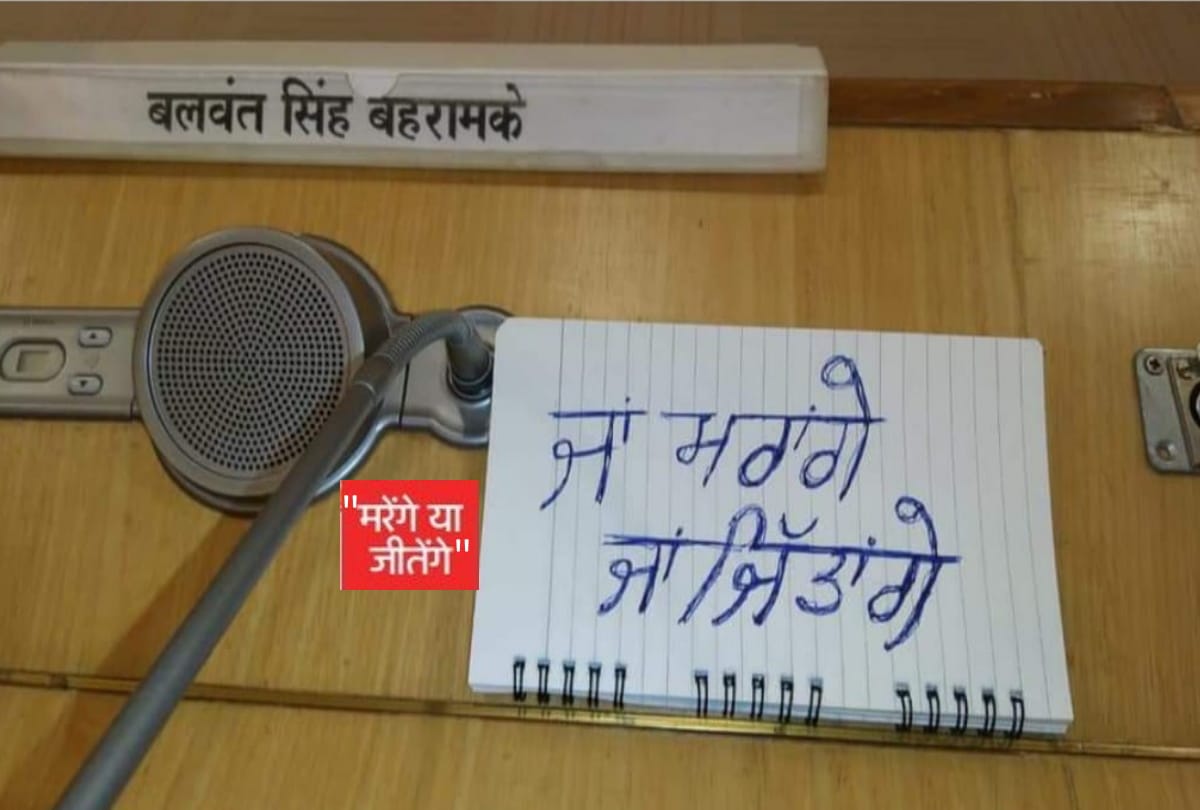 बलवंत सिंह बहरामके
ਜਾਂ ਮਰਾਂਗੇ
ਜਾਂ ਜਿੱਤਾਂਗੇ
"मरेंगे या
जीतेंगे"